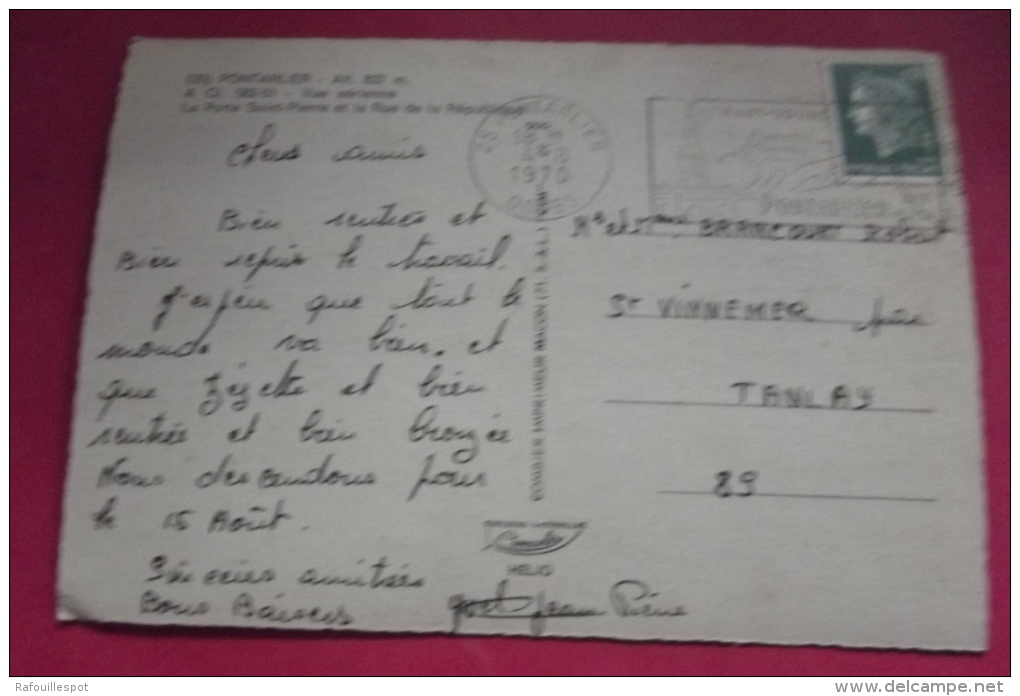 (25) PONTARLIER - Alt. 837 m.
A. Ci. - Vue aérienne
La Porte Saint-Pierre et la Rue de la République
25 PONTARLIER
1970
DOUBS
PONTARLIER
Chers amis
Bien rentrés et
Bien repris le travail.
J'espère que tout le
monde va bien. et
que Zézette et bien
rentrée et bien bronzée
Nous descendons pour
le 15 Août.
Sincères amitiés
Bons Baisers
Jean Pierre
Mr et Mme BRANCOURT
St VINNEMER par
TANLAY
89
COMBIER IMPRIMEUR MACON
Combier
HELIO
Rafouillespot
www.delcampe.net